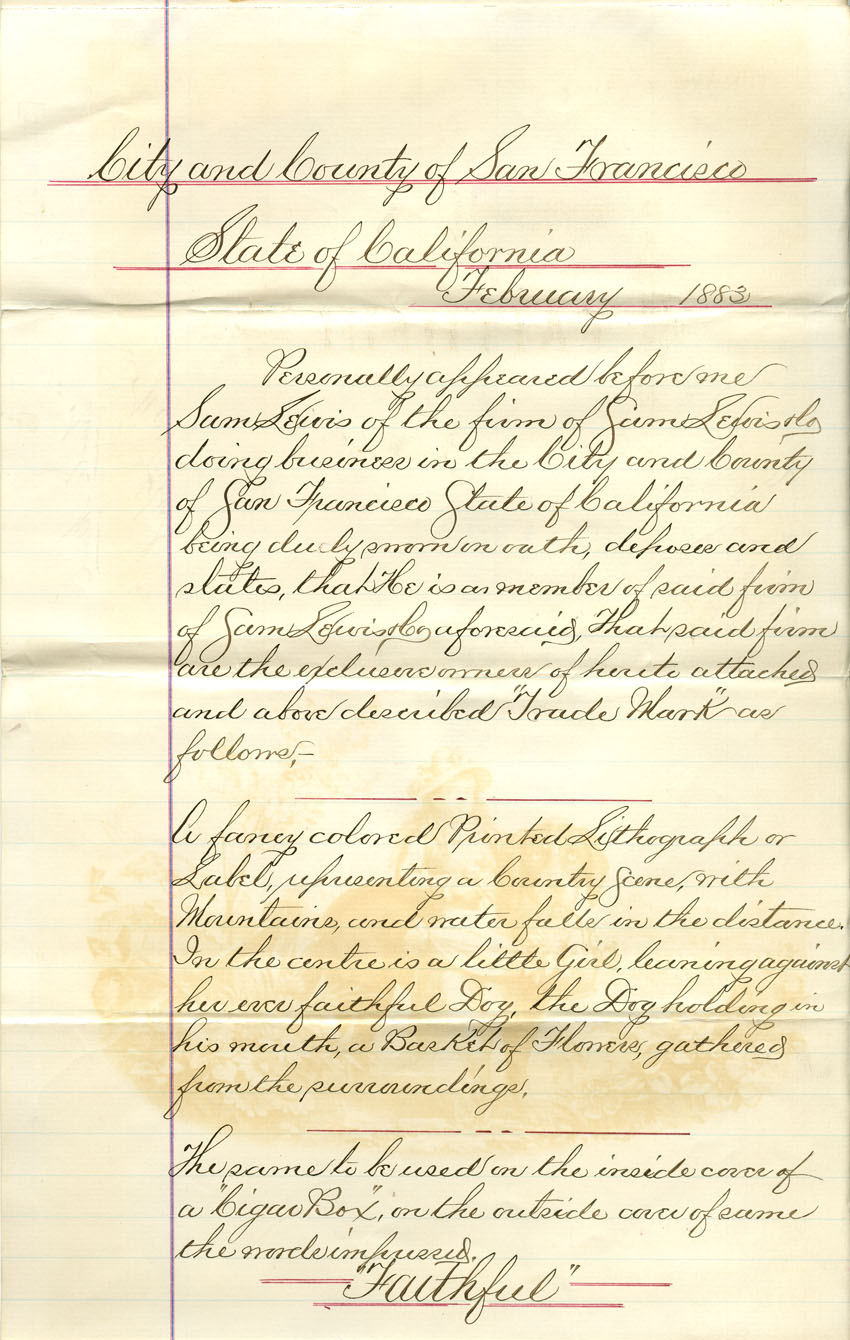 City and County of San Francisco
State of California
February 1883
Personally appeared before me
Sam Lewis of the firm of Sam Lewis & Co
doing business in the City and County
of San Francisco State of California
being duly sworn on oath, deposes and
states, that He is a member of said firm
of Sam Lewis & Co aforesaid, That said firm
are the exclusive owners of hereto attached
and above described "Trade Mark" as
follows,—
A fancy colored Printed Lithograph or
Label, representing a Country Scene, with
Mountains, and water falls in the distance.
In the centre is a little Girl, leaning against
her ever faithful Dog, the Dog holding in
his mouth, a Basket of Flowers, gathered
from the surroundings.
The same to be used on the inside cover of
a "Cigar Box", on the outside cover of same
the words impressed.
"Faithful"